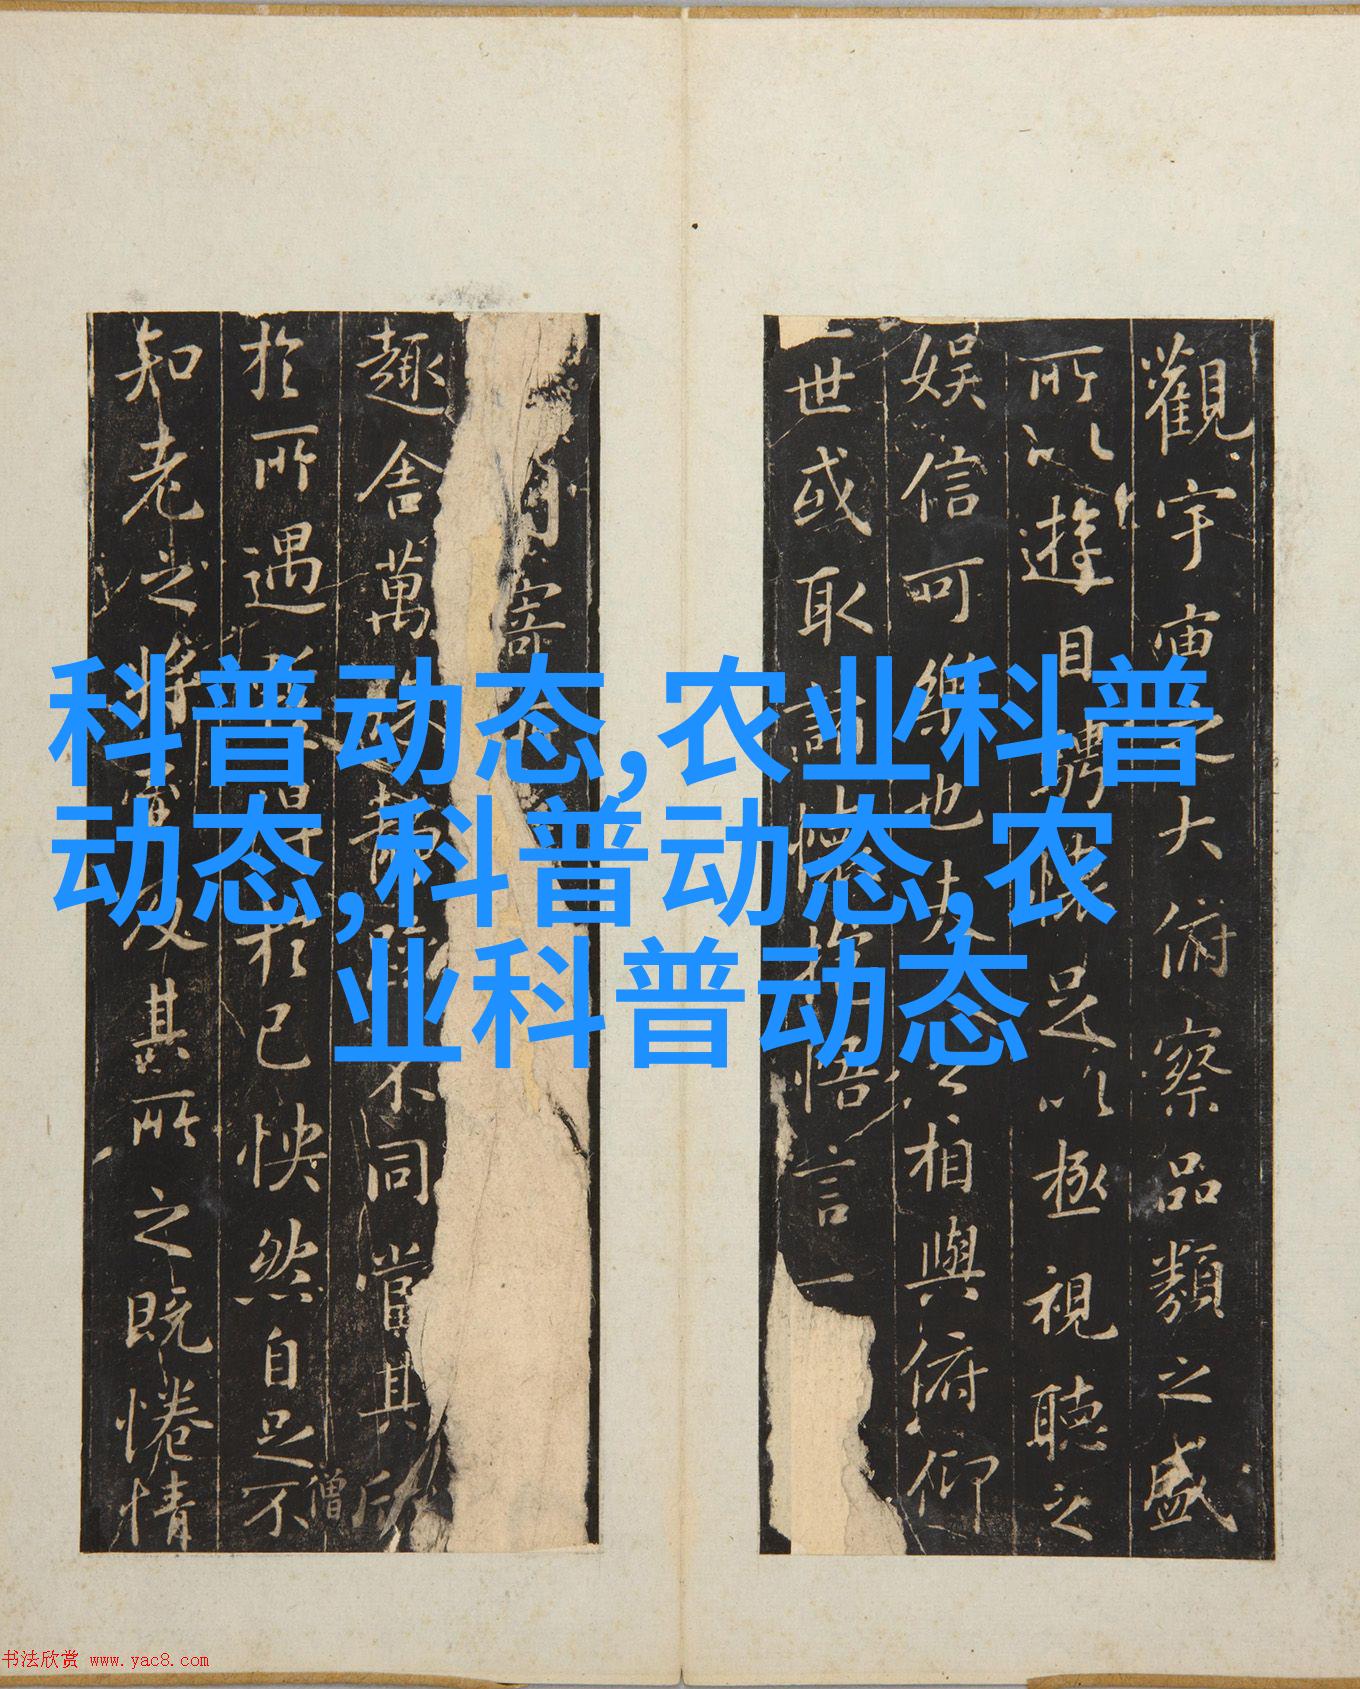 科普动态,农业科普
动态,科普动态,农
业科普动态
觀宇宙之大俯察品類之盛
所以遊目騁懷足以極視聽之
娛信可樂也夫之相與俯仰
世或取諸懷抱悟言一
寄
趣舍萬殊靜躁不同當其欣
僧
於所遇暫得於己怏然自足不
知老之將至及其所之既惓情
书法欣赏 www.yac8.com